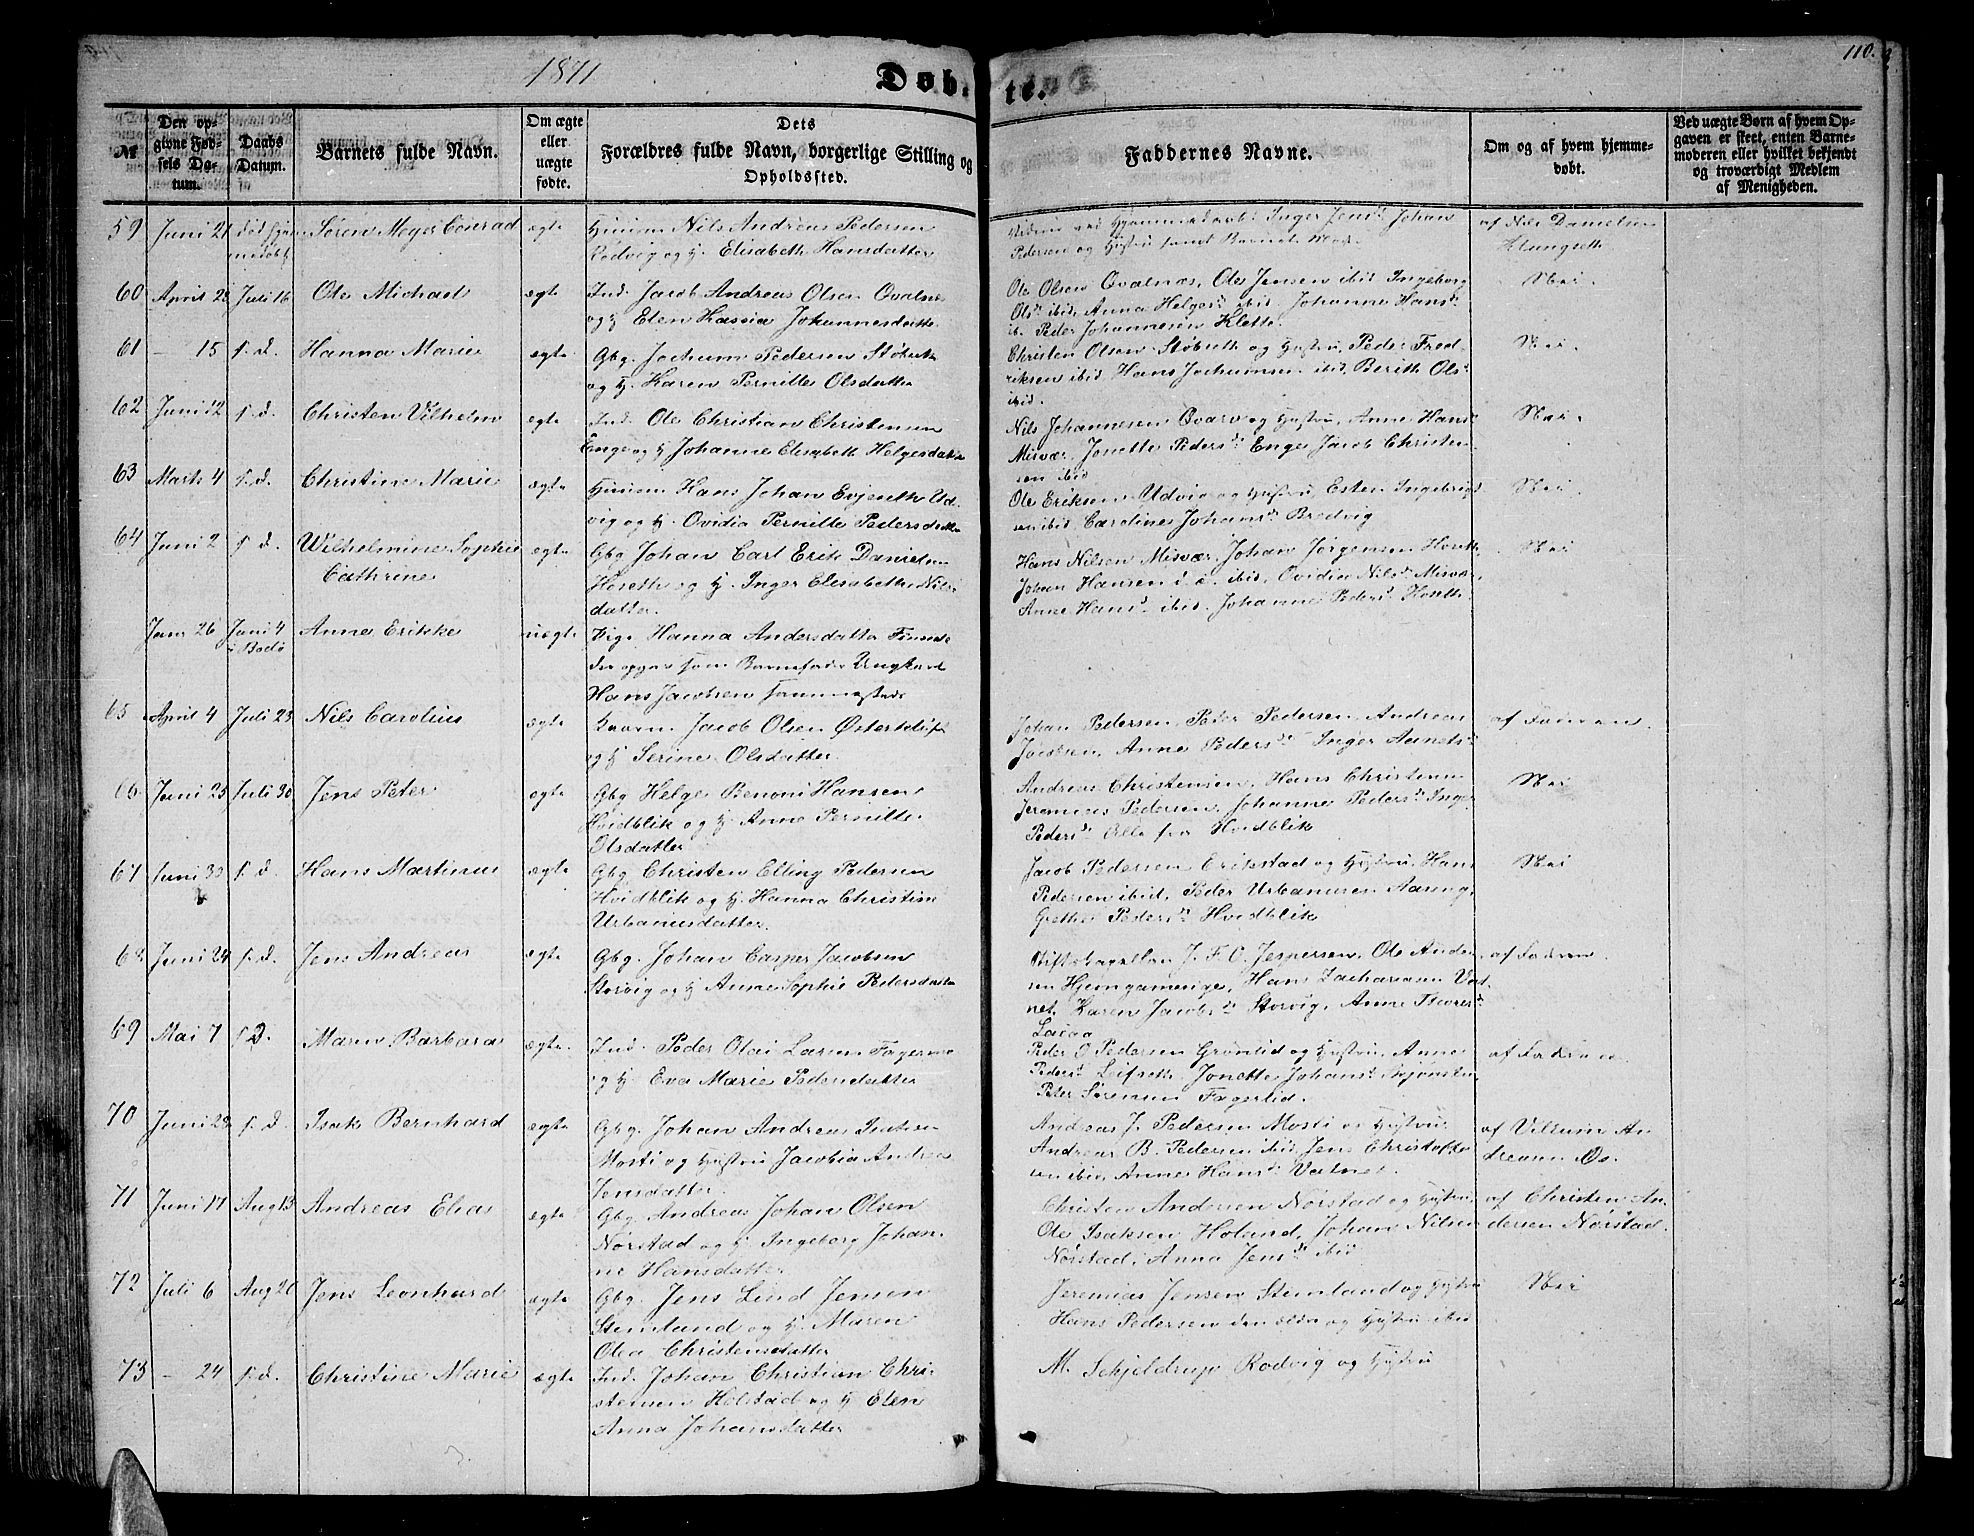 1871
110.
Døbte.
№
Den opgivne Fødsels Datum.
Daabs Datum.
Barnets fulde Navn.
Om ægte eller uægte fødte.
Dets Forældres fulde Navn, borgerlige Stilling og Opholdssted.
Faddernes Navne.
Om og af hvem hjemmedøbt.
Ved uægte Børn af hvem Opgaven er skeet, enten Barnemoderen eller hvilket bekjendt og troværdigt Medlem af Menigheden.
59 Juni 21 Søren Meyer Conrad ægte Huusm Nils Andreas Pedersen
Rødvig og H. Elisabeth Hansdatter
Inger Jensd. Johan
Pedersen og Hustru samt Barnets Moder
af Nils Danielsen
60 April 23 Juli 16 Ole Michael ægte Ind. Jacob Andreas Olsen Qvalnes
og H Elen Hassia Johannesdatter
Ole Olsen Qvalnæs, Ole Jensen ibid Ingeborg
Olsd ibid, Anna Helgesd ibid. Johanne Hansd
ib. Peder Johannesen Klette.
Nei.
61 – 15 s. d. Hanna Marie ægte Gbg. Jochum Pedersen Støbseth
og H. Karen Pernille Olsdatter
Christen Olsen Støbseth og Hustru, Peder Fred-
riksen ibid Hans Jochumsen ibid Berith Olsd
ibid.
Nei.
62 Juni 12 s. d. Christen Vilhelm ægte Ind. Ole Christian Christensen
Enge og H Johanne Elisabeth Helgesdatter
Nils Johannesen Qvarv og Hustru, Anne Hansd
Misvær, Jonette Pedersd Enge Jacob Christen
sen ibid
Nei.
63 Marts 4 s. d. Christine Marie ægte Huusm Hans Johan Evjenth Ud-
vig og H. Ovidia Pernille Pedersdatter
Ole Eriksen Udvig og Hustru, Esten Ingebrigt
sen ibid Caroline Johansd Bredvig
Nei.
64 Juni 2 s. d. Wilhelmine Sophie
Cathrine
ægte Gbg Johan Carl Erik Danielsen
Hoseth og H. Inger Elisabeth Nils-
datter.
Hans Nilsen Misvær, Johan Jørgensen Hoseth
Johan Hansen i. e. ibid, Ovidia Nilsd Misvær,
Anne Hansd ibid. Johanne Pedersd Hoseth.
Nei
Janr 26 Juni 4
i Bodø
Anne Erikke uægte Pige Hanna Andersdatter
der opgav som Barnefader Ungkarl
Hans Jacobsen sammesteds
65 April 4 Juli 23 Nils Carolius ægte Jacob Olsen
og H Serine Olsdatter
Johan Pedersen, Peder Pedersen, Andreas
Jacobsen, Anne Pedersd Inger
af Faderen.
66 Juni 25 Juli 30 Jens Peter ægte Gbg Helge Benoni Hansen
Hvidblik og H Anne Pernille
Olsdatter
Andreas Christensen, Hans Christensen
Jeremias Pedersen, Johanne Pedersd Inger
Pedersd Alle fra Hvidblik
Nei
67 Juni 30 s. d. Hans Martinus ægte Gbg Christen Elling Pedersen
Hvidblik og H. Hanna Christine
Urbanusdatter
Jacob Pedersen Erikstad og Hustru, Hans
Pedersen ibid, Peder Urbanusen Aaseng,
Grethe Pedersd Hvidblik
Nei
68 Juni 24 s. d. Jens Andreas ægte Gbg. Johan Casper Jacobsen
Storvig og H Anne Sophie Pedersdatter
Stiftskapellan J. F. O. Jespersen, Ole Ander
sen Hjemgamenge, Hans Zachariasen Vat-
net, Karen Jacobsd Storvig, Anne
af Faderen.
69 Mai 7 s. d. Maren Barbara ægte Ind. Peder Olai Larsen
og H Eva Marie Pedersdatter
Peder O Pedersen Grønlid og Hustru, Anne
Pedersd Leifseth Jonette Johansd
Peter Sørensen Fagerlid.
af Faderen
70 Juni 23 s. d. Isak Bernhard ægte Gbg. Johan Andreas
Mosti og Hustru Jacobia Andrea
Jensdatter
Andreas J. Pedersen Mosti og Hustru
Andreas B. Pedersen ibid Jens Christoffer
sen ibid, Anne Hansd Vatnet.
af Villum An
dreasen Os.
71 Juni 17 Aug 13 Andreas Elias ægte Gbg. Andreas Johan Olsen
Nørstad og H Ingeborg Johan-
ne Hansdatter
Christen Andersen Nørstad og Hustru,
Ole Isaksen Holand, Johan Nilsen
Nørstad, Anna Jensd ibid
af Christen An-
dersen Nørstad.
72 Juli 6 Aug 20 Jens Leonhard ægte Gbg. Jens Lind Jensen
Stemland og H. Maren
Olea Christensdatter
Jeremias Jensen Stemland og Hustru
Hans Pedersen den ældre og Hustru ibid
Nei
73 – 24 s. d. Christine Marie ægte Ind. Johan Christian Chri-
stensen Holstad og H Elen
Anna Johansdatter
M. Schjeldrup Rødvig og Hustru